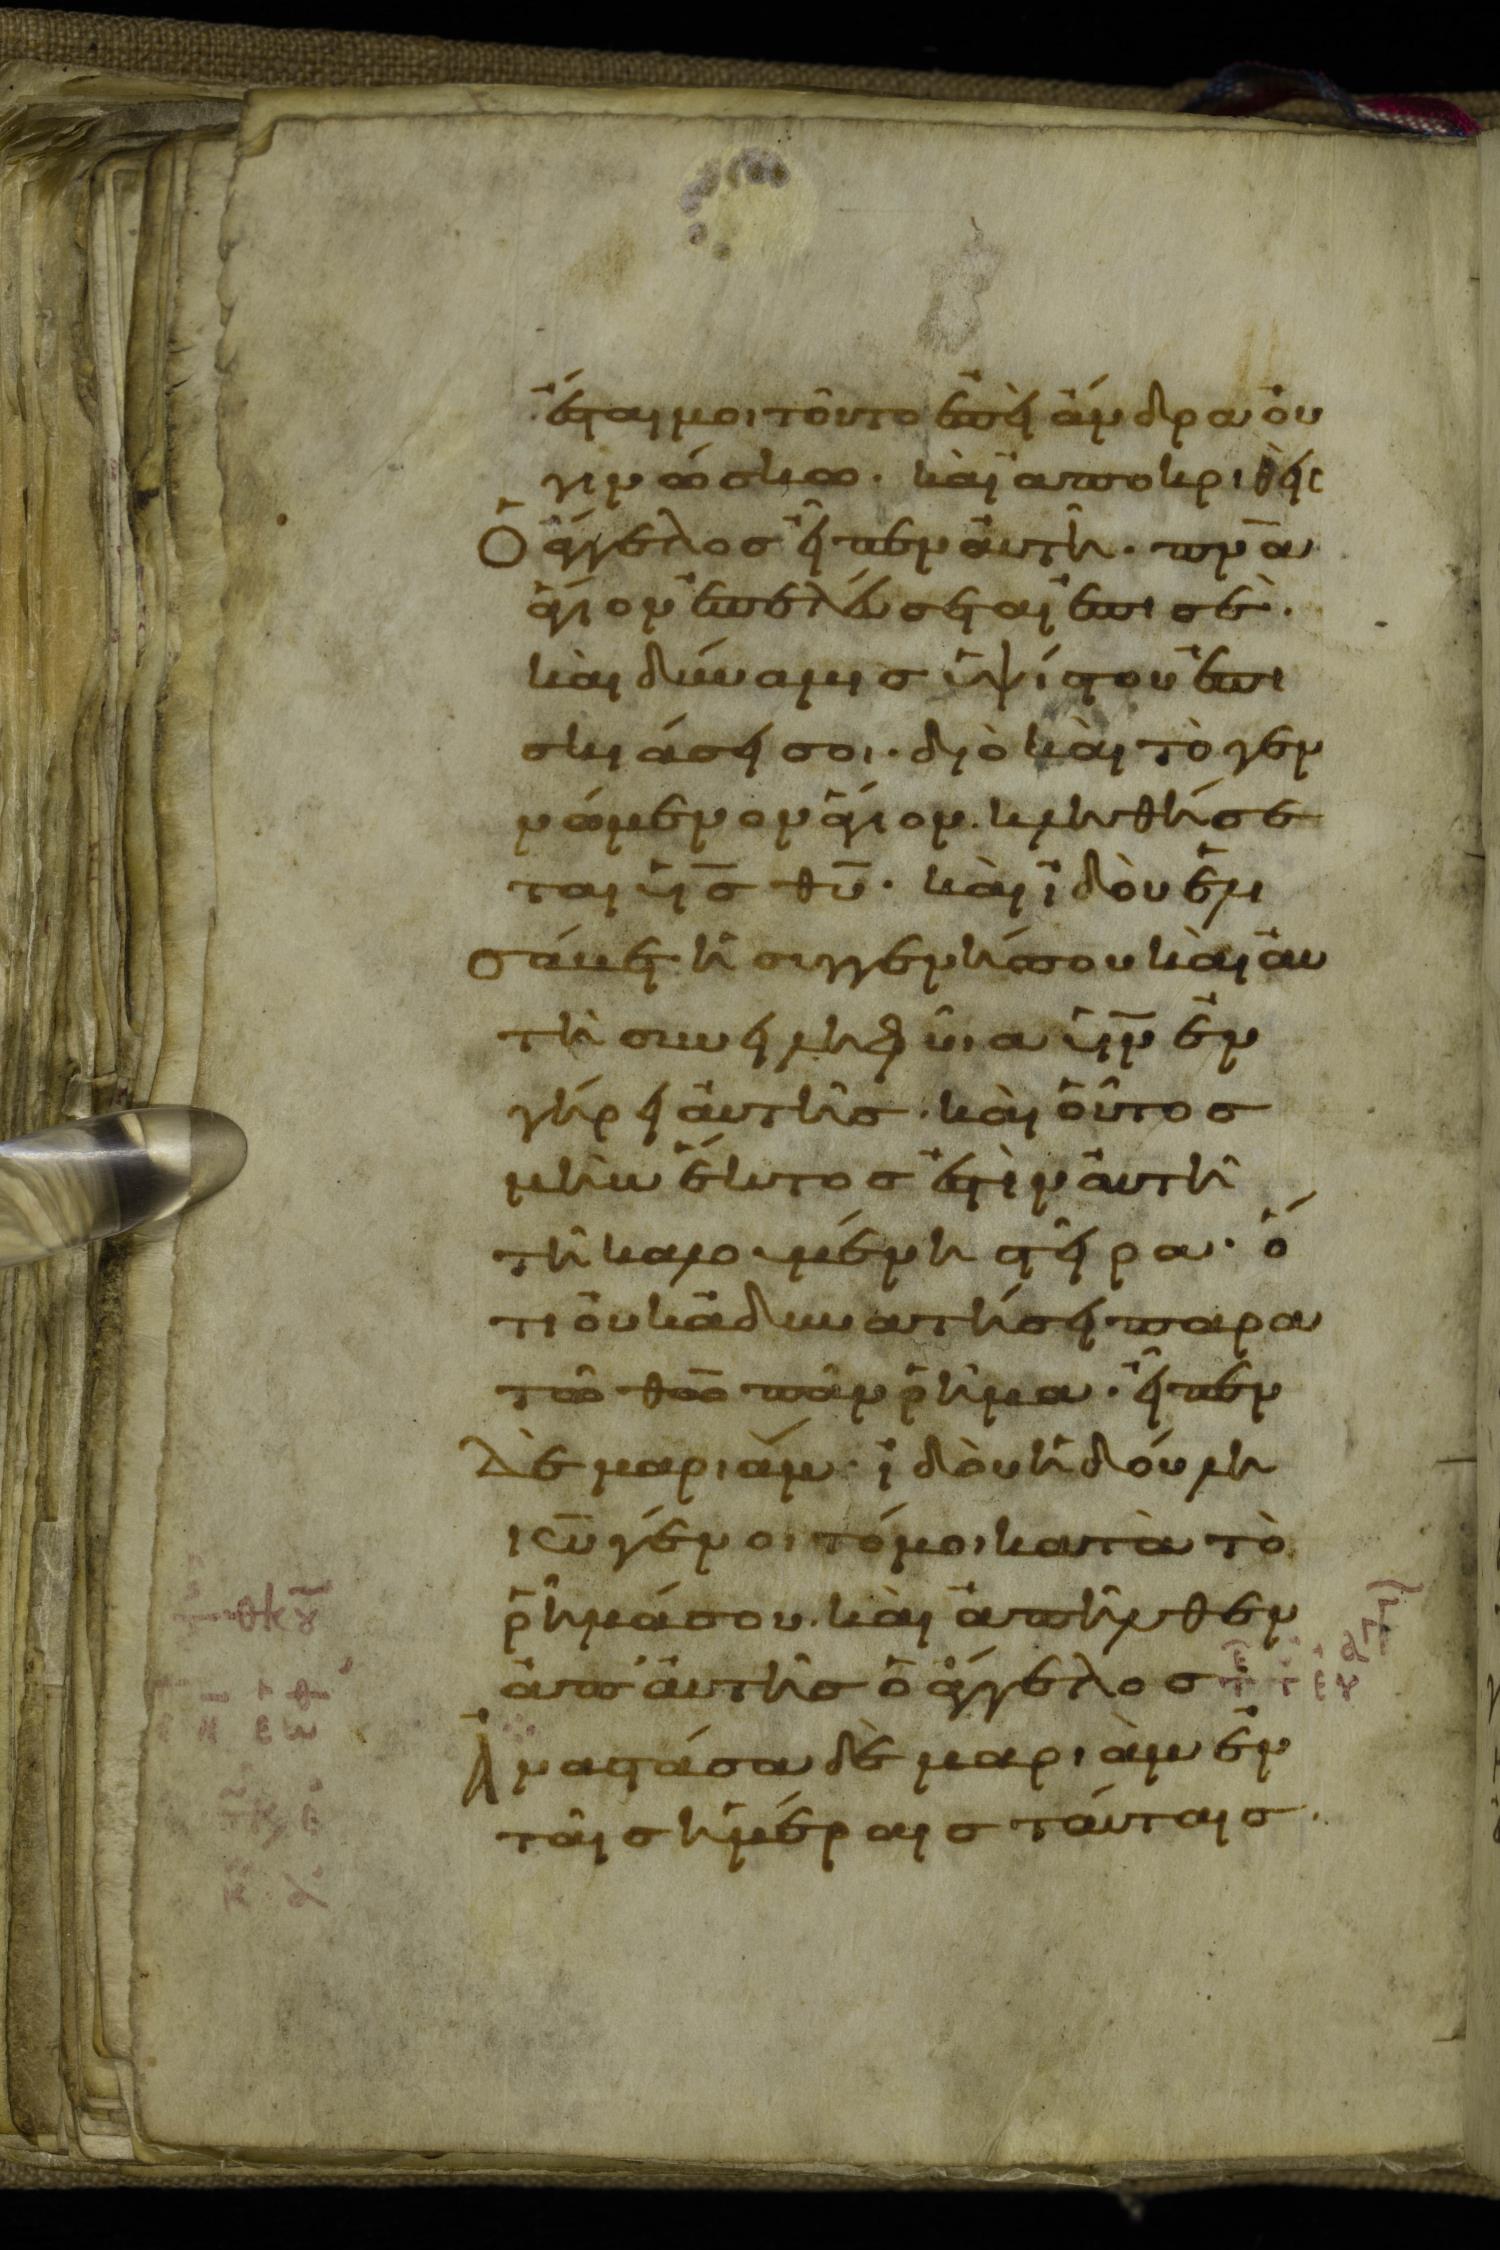 ἔσται μοι τοῦτο ἐπεὶ ἄνδρα οὐ
γινώσκω. καὶ ἀποκριθεὶς
Ὁ ἄγγελος εἶπεν αὐτῆ. πνᾶ
ἅγιον ἐπελεύσεται ἐπι σὲ.
καὶ δύναμις ὑψίστου ἐπι
σκιάσει σοι. διὸ καὶ τὸ γεν
νώμενον ἅγιον. κληθήσε
ται υἱσ θυ. καὶ ἰδοὺ ἐλι
σάβετ ἡ συγγενήσου καὶ αὐ
τὴ συνειληφυῖα υἱν ἐν
γήρει αὐτῆς. καὶ οὗτος
μὴν ἕκτος ἐστὶν αὐτῆ
τῆ καλουμένη στεῖρα. ὅ
τι οὐκ ἀδυνατήσει παρα
τῶ θῶ πᾶν ῥῆμα. εἶπεν
δὲ μαριάμ. ἰδοὺ ἡ δούλη
κυ γένοιτό μοι κατὰ τὸ
ῥῆμά σου. καὶ ἀπῆλθεν
ἀπ' αὐτῆς ὁ ἄγγελος
Ἀναστάσα δὲ μαριὰμ ἐν
ταῖς ἡμέραις ταύταις.